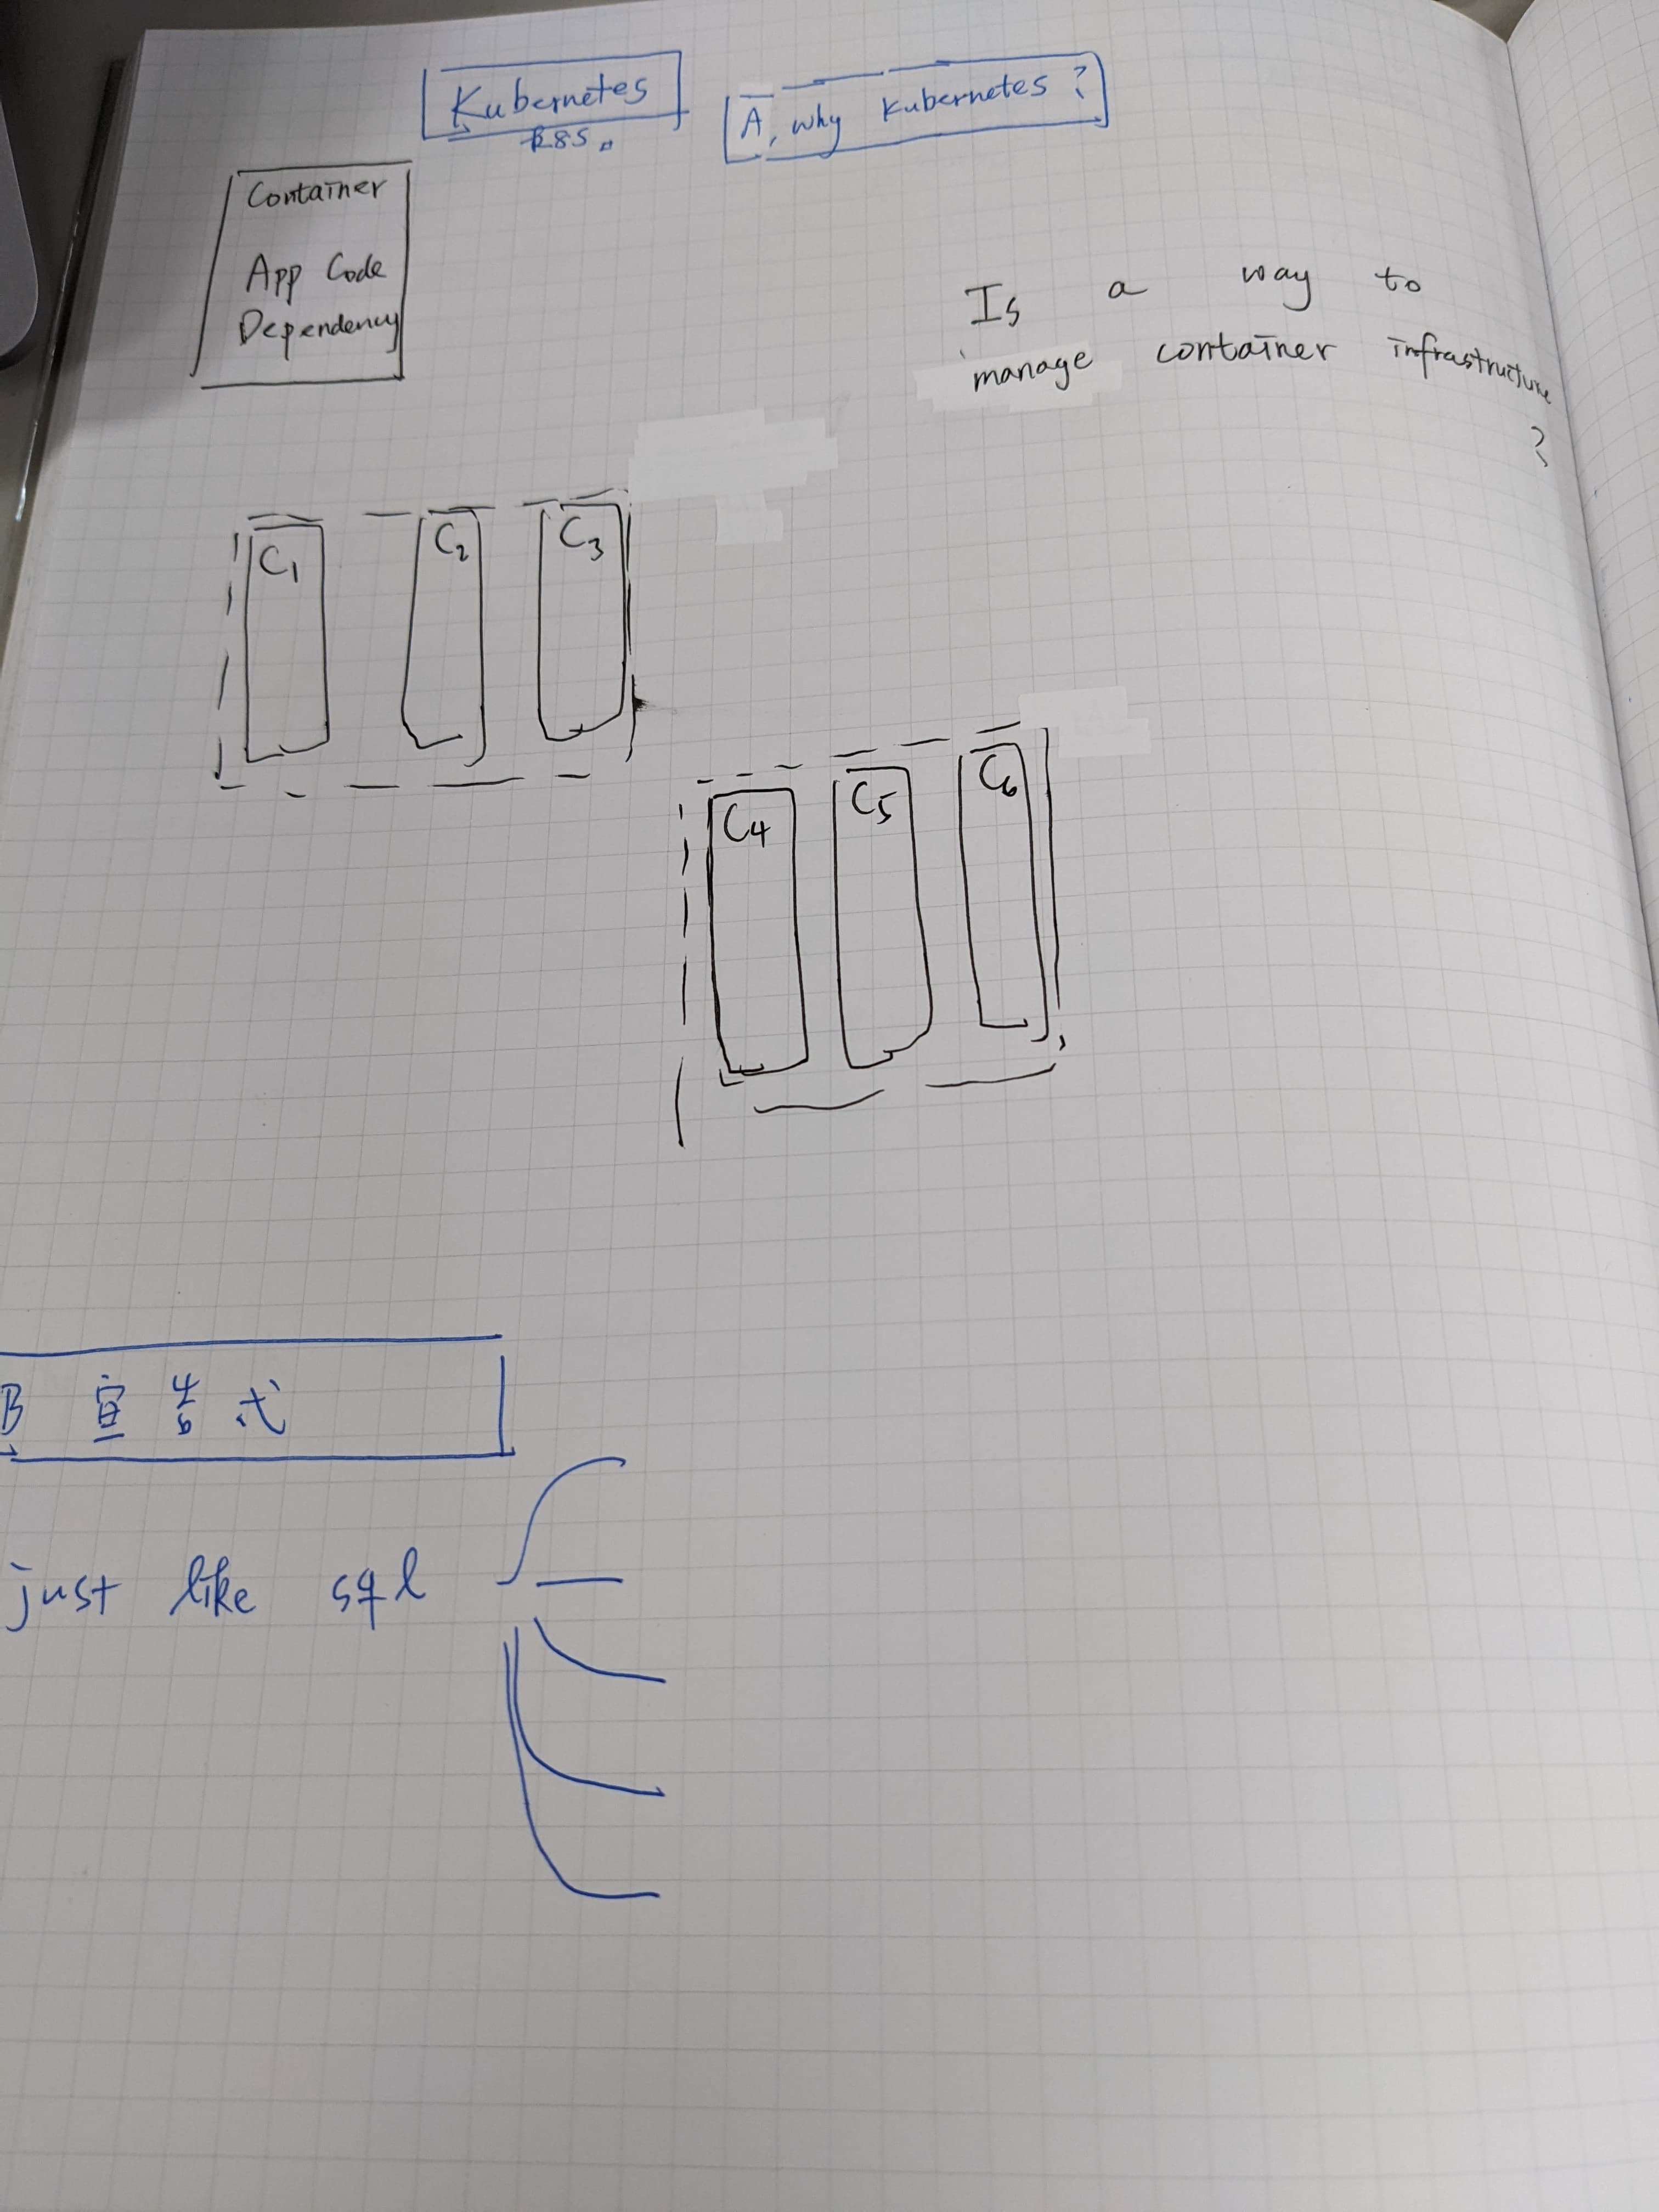 Kubernetes
k8s.
A, why kubernetes ?
Container
App Code
Dependency
Is a way to
manage container infrastructure
?
C1
C2
C3
C4
C5
C6
B 宣告式
just like sql